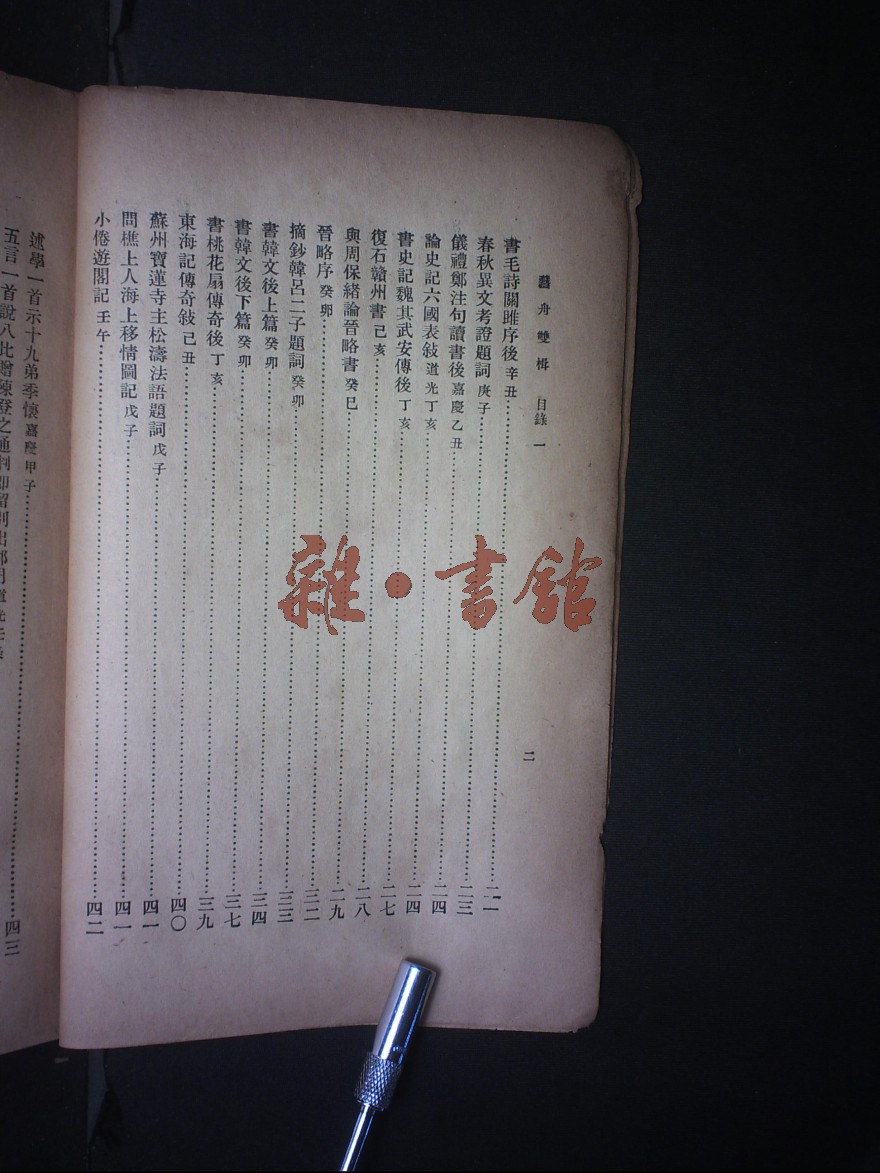 藝舟雙楫 目錄一 二
書毛詩關雎序後 辛丑
春秋異文考證題詞 庚子……二一
儀禮鄭注句讀書後 嘉慶乙丑……二三
論史記六國表敍 道光丁亥……二四
書史記魏其武安傳後 丁亥……二四
復石贛州書 己亥……二七
與周保緒論晉略書 癸巳……二八
晉略序 癸卯……二九
摘鈔韓呂二子題詞 癸卯……三二
書韓文後上篇 癸卯……三三
書韓文後下篇 癸卯……三四
書桃花扇傳奇後 丁亥……三七
東海記傳奇敍 己丑……三九
蘇州寶蓮寺主松濤法語題詞 戊子……四〇
問樵上人海上移情圖記 戊子……四一
小倦遊閣記 壬午……四一
四二
述學一首示十九弟季懷 嘉慶甲子……四三
五言一首說八比贈陳登之通判即留別出都
雜·書館